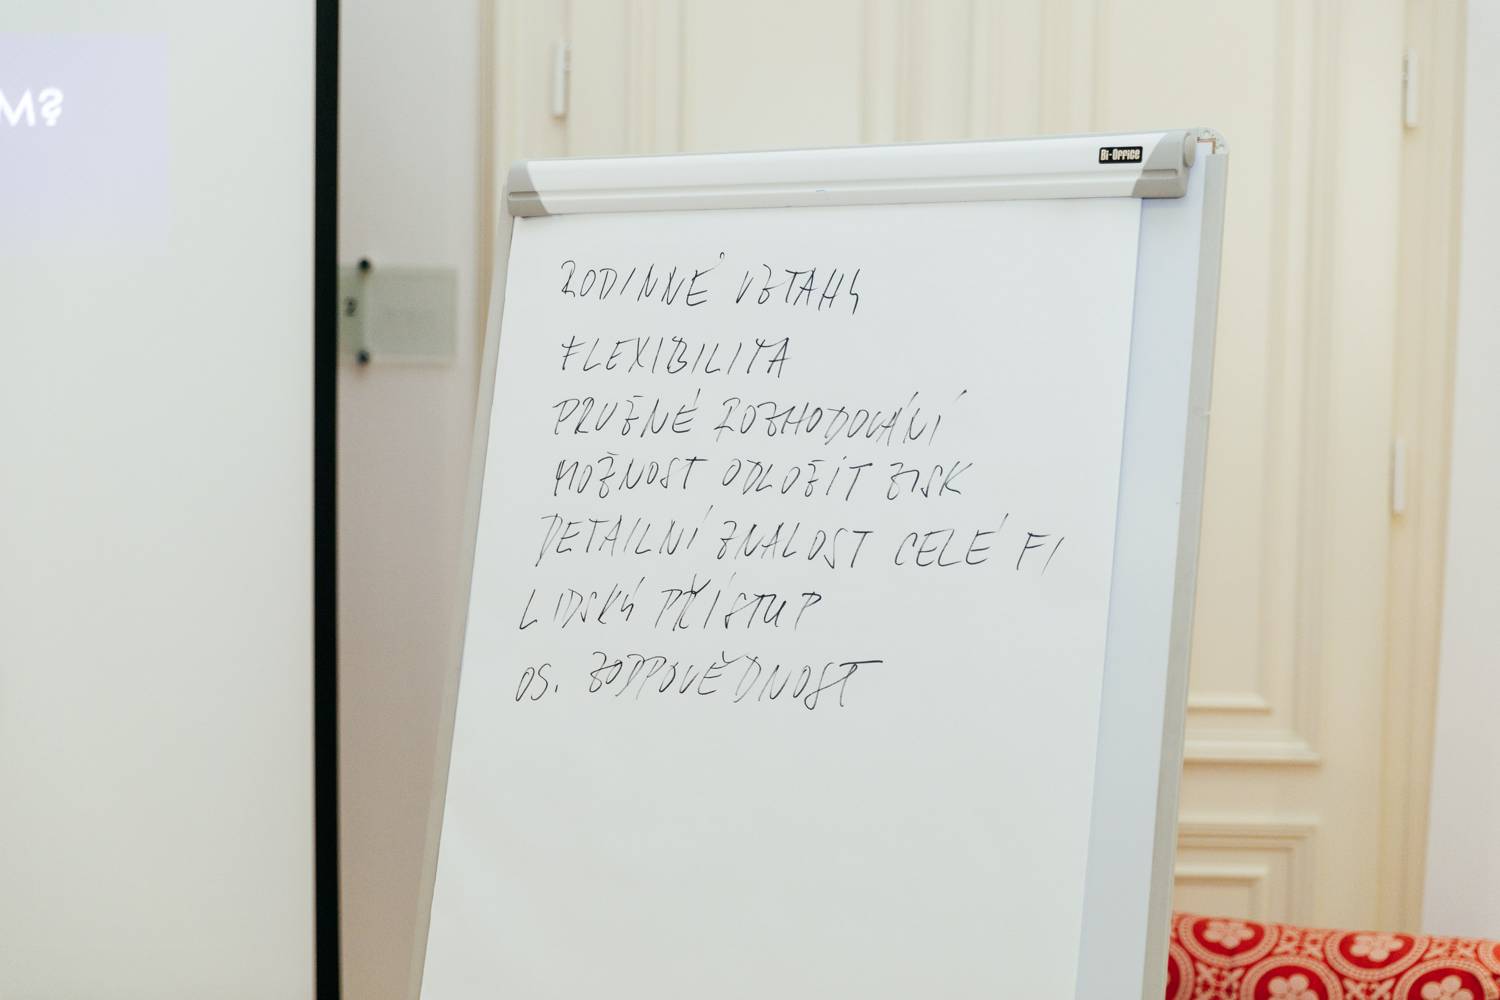 M?
Bi-Office
RODINNÉ VZTAHY
FLEXIBILITA
PRUŽNÉ ROZHODOVÁNÍ
MOŽNOST ODLOŽIT ZISK
DETAILNÍ ZNALOST CELÉ FI
LIDSKÝ PŘÍSTUP
OS. ZODPOVĚDNOST